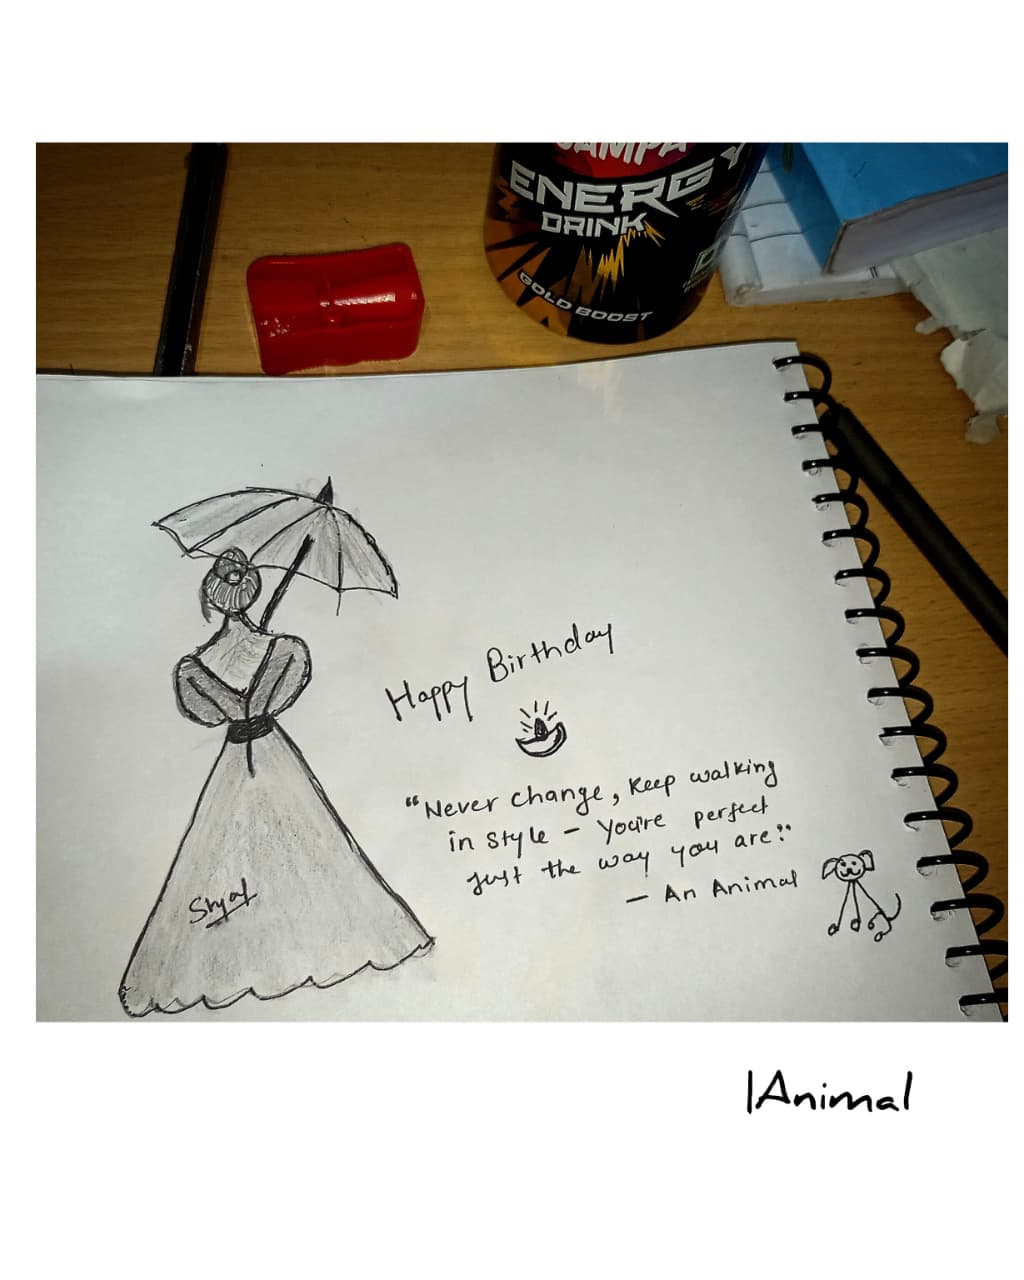 ENERGY
DRINK
GOLD BOOST
Happy Birthday
“Never change, Keep walking
in style – You're perfect
just the way you are!”
– An Animal
|Animal